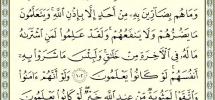 وَمَا هُم بِضَآرِّينَ بِهِۦ مِنْ أَحَدٍ إِلَّا بِإِذْنِ ٱللَّهِ ۚ وَيَتَعَلَّمُونَ
مَا يَضُرُّهُمْ وَلَا يَنفَعُهُمْ ۚ وَلَقَدْ عَلِمُوا۟ لَمَنِ ٱشْتَرَىٰهُ
مَا لَهُۥ فِى ٱلْـَٔاخِرَةِ مِنْ خَلَٰقٍ ۚ وَلَبِئْسَ مَا شَرَوْا۟ بِهِۦٓ
أَنفُسَهُمْ ۚ لَوْ كَانُوا۟ يَعْلَمُونَ ١٠٢ وَلَوْ أَنَّهُمْ ءَامَنُوا۟
وَٱتَّقَوْا۟ لَمَثُوبَةٌ مِّنْ عِندِ ٱللَّهِ خَيْرٌ ۖ لَّوْ كَانُوا۟ يَعْلَمُونَ